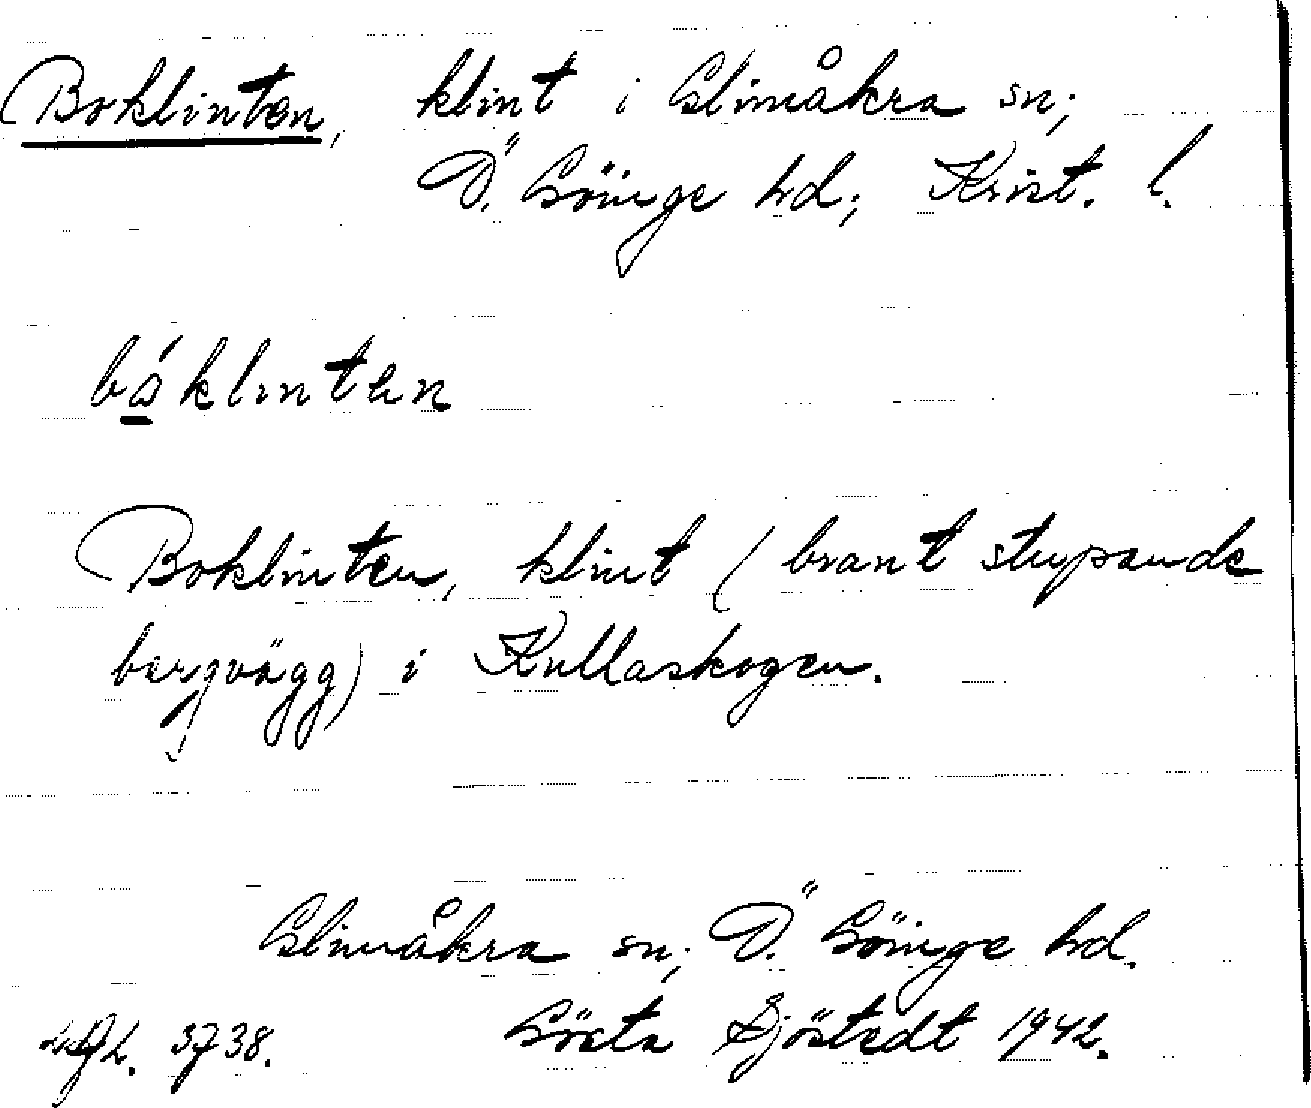 Boklinten, klint i Glimåkra sn;
Ö. Göinge hd; Krist. l.
bóklintan
Boklinten, klint (brant stupande
bergvägg) i Kullaskogen.
Glimåkra sn; Ö. Göinge hd.
3738. Gösta Sjöstedt 1942.